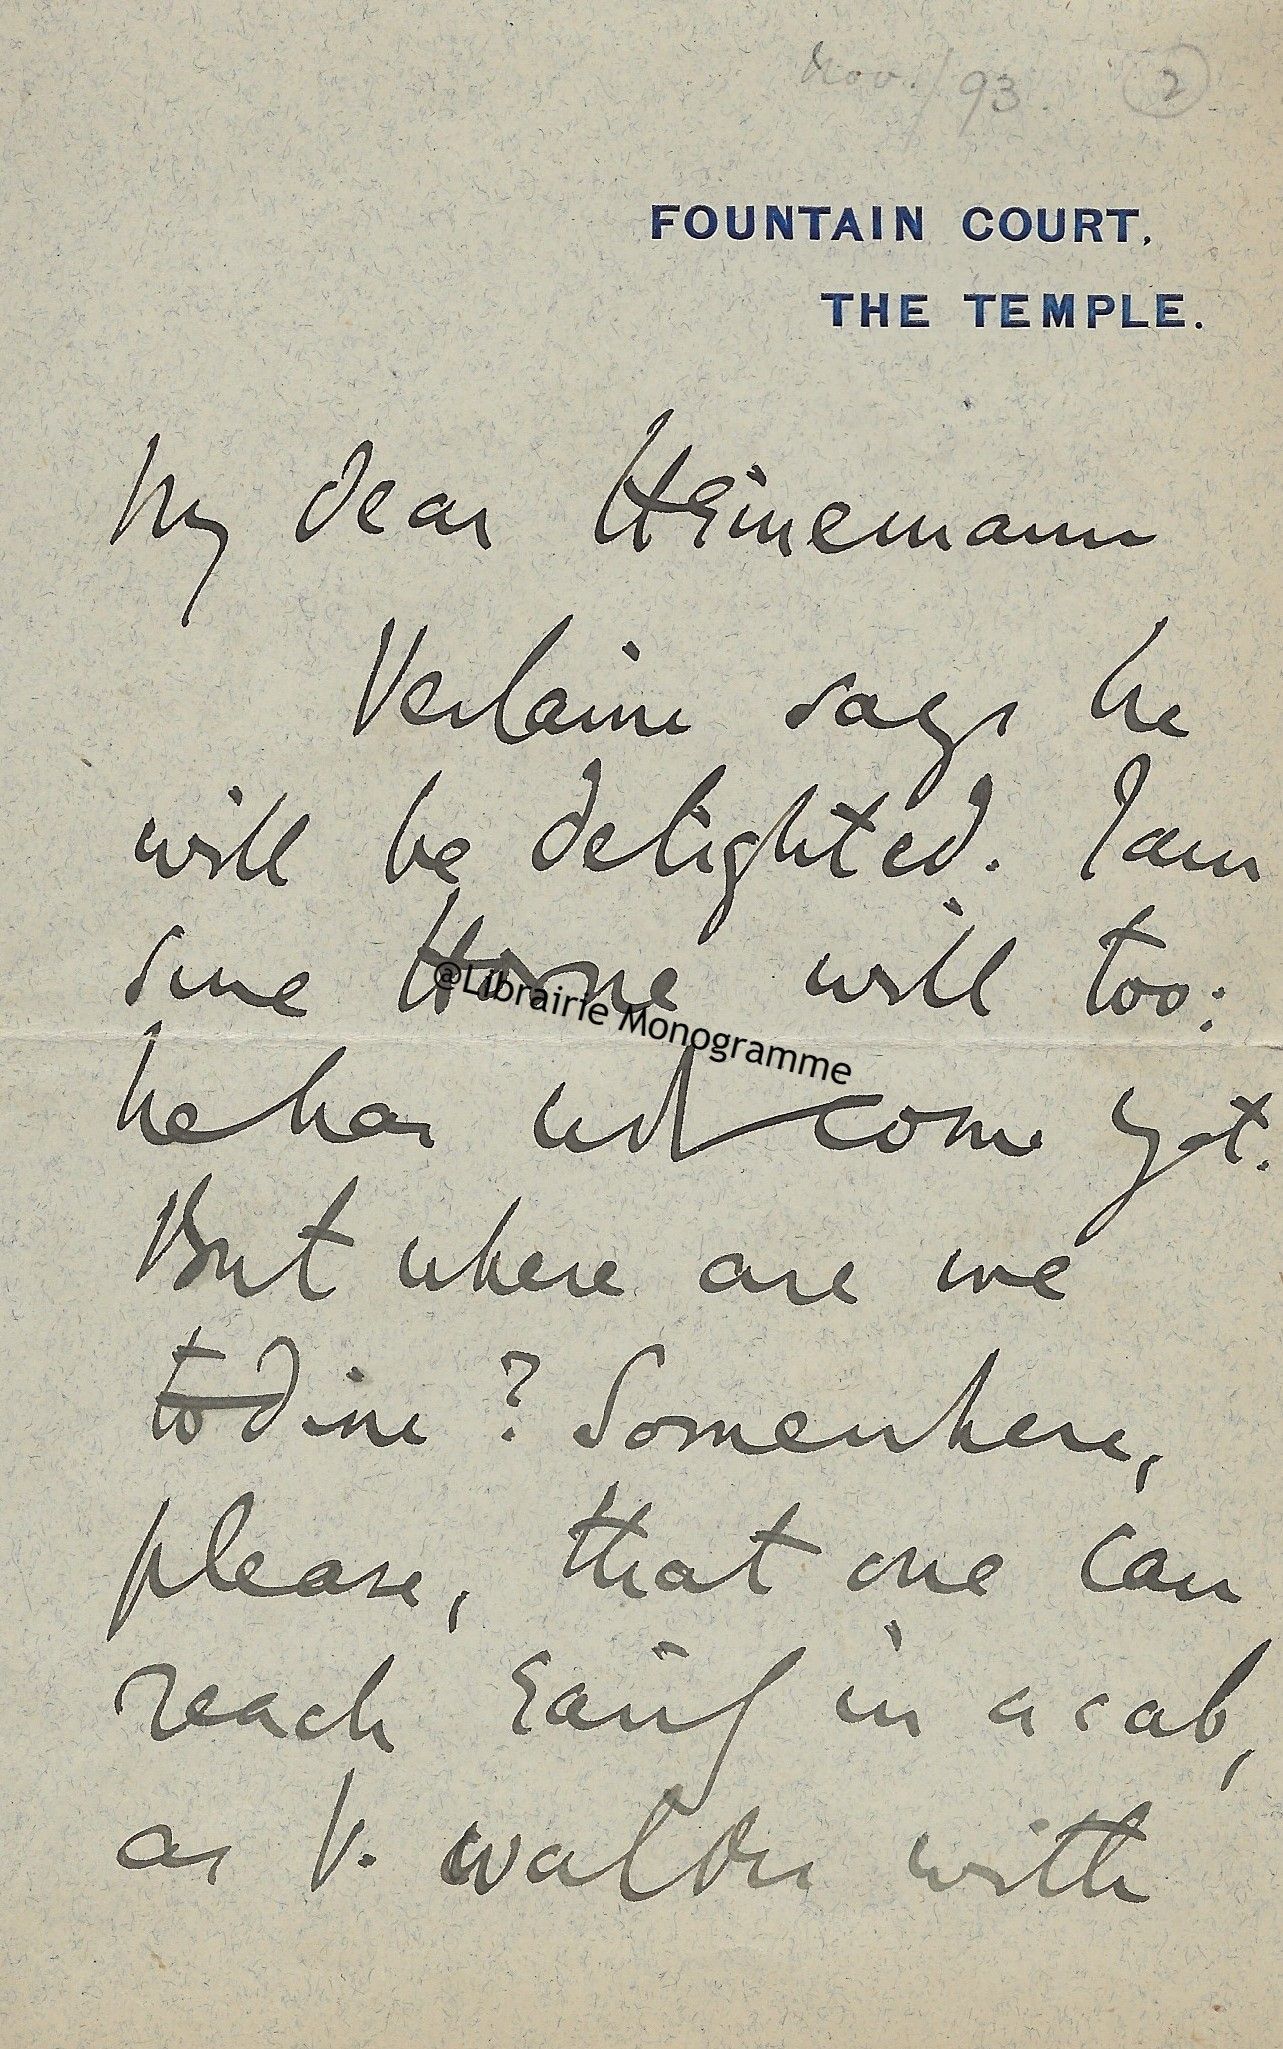 Nov./93. 2
FOUNTAIN COURT,
THE TEMPLE.
My dear Heinemann
Verlaine says he
will be delighted. I am
sure Horne will too:
@Librairie Monogramme
he has not come yet.
But where are we
to dine? Somewhere,
please, that one can
reach easily in a cab,
as V. walks with